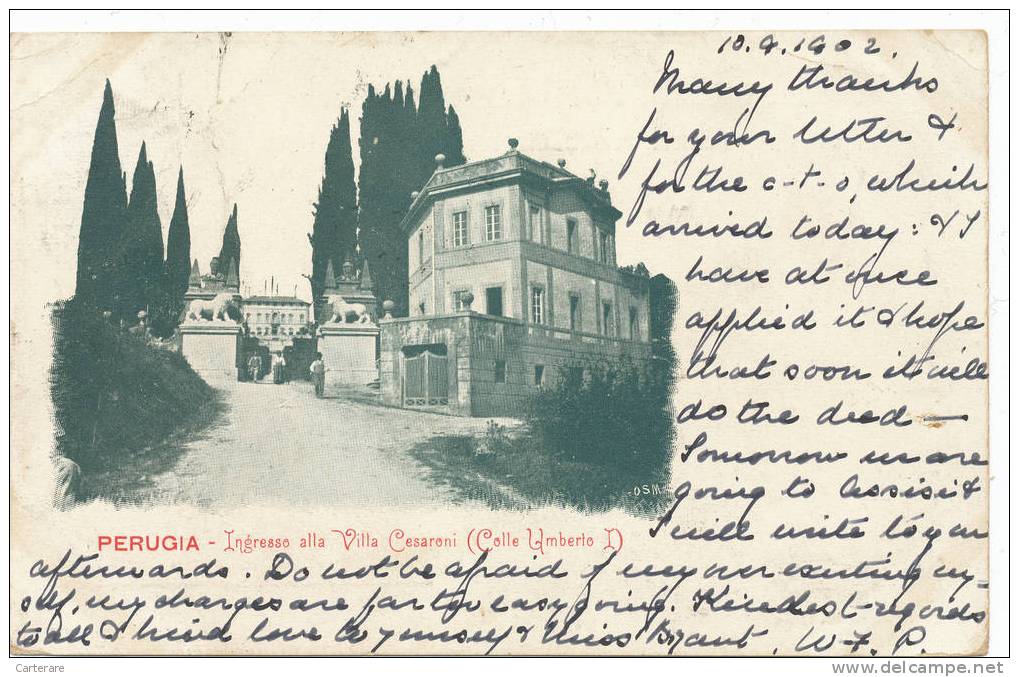 10.9.1902.
Many thanks
for your letter &
for the c-t-s, which
arrived today: & I
have at once
applied it & hope
that soon it will
do the deed —
Tomorrow we are
going to Assisi &
I will write to you
afterwards. Do not be afraid of my over exerting my-
self, my charges are far too easy going. Kindest regards
to all & kind love to yourself & Miss
W. F. P.
OSM
PERUGIA - Ingresso alla Villa Cesaroni (Colle Umberto I)
Carterare
www.delcampe.net